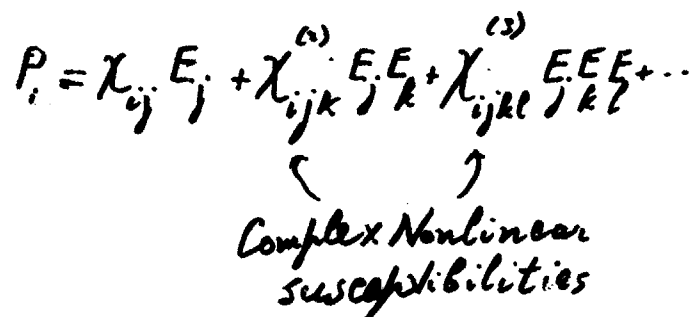 P_i = χ_ij E_j + χ_ijk^(2) E_j E_k + χ_ijkl^(3) E_j E_k E_l + ...
Complex Nonlinear
susceptibilities